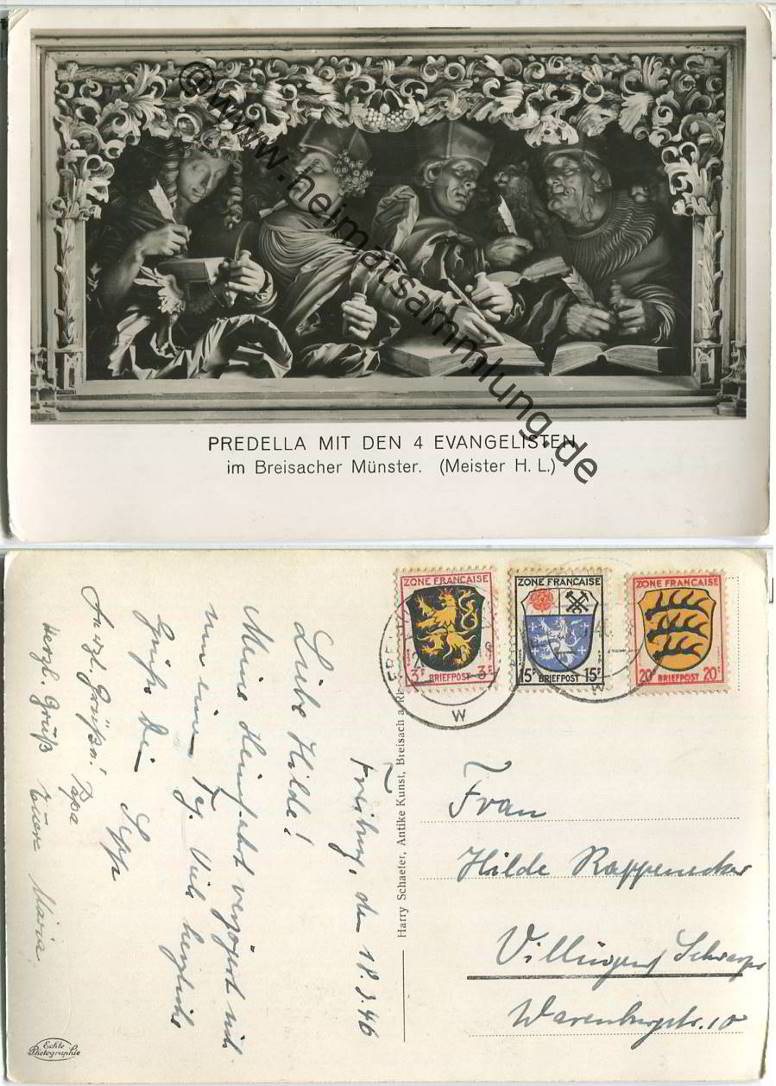 @www.heimatsammlung.de
PREDELLA MIT DEN 4 EVANGELISTEN
im Breisacher Münster. (Meister H. L.)
ZONE FRANÇAISE
3 BRIEFPOST 3
ZONE FRANÇAISE
15 BRIEFPOST 15
ZONE FRANÇAISE
20 BRIEFPOST 20
W
Harry Schaefer, Antike Kunst, Breisach a. Rh.
Freiburg, den 18.3.46
Liebe Hilde!
Meine Heimfahrt verzögert sich
um einen Tag. Viele herzliche
Grüße Dein Sepp
Herzl. Grüße! Papa
Herzl. Grüß Eure Maria
Frau
Hilde Rappenecker
Villingen/ Schwarzw
Warenburgstr. 10
Echte
Photographie